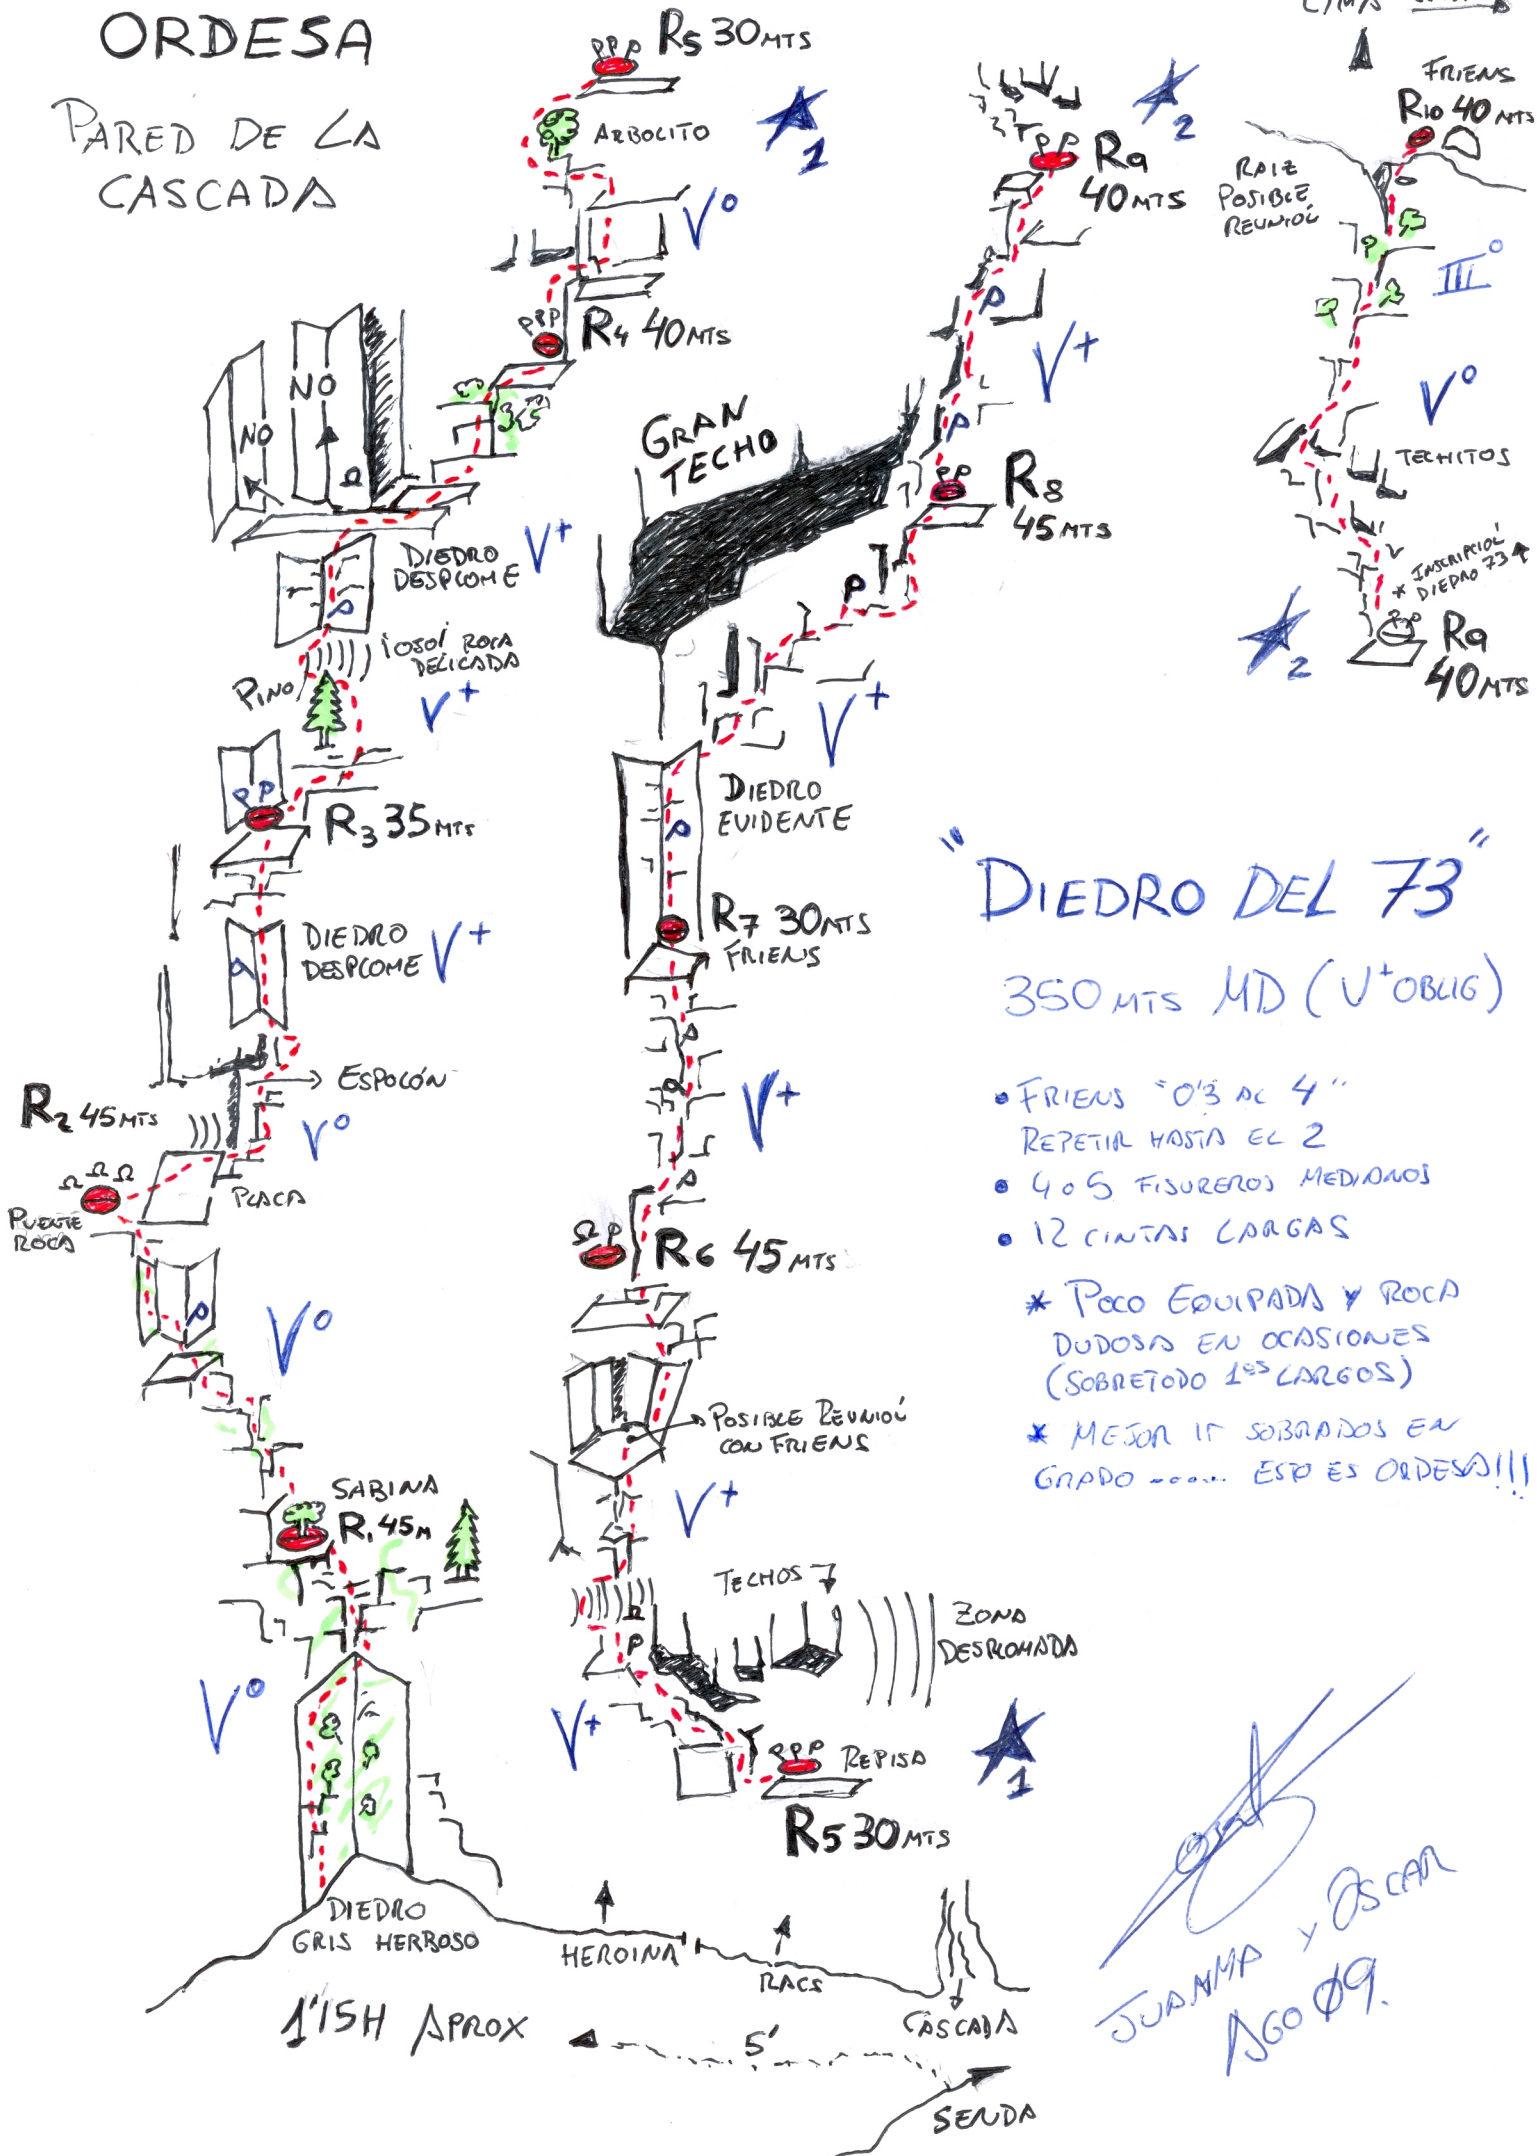 ORDESA
PARED DE LA
CASCADA
R5 30 MTS
ARBOLITO
1
V°
R4 40 MTS
NO
NO
DIEDRO
DESPLOME
V+
¡OJO! ROCA
DELICADA
PINO
V+
R3 35 MTS
DIEDRO
DESPLOME
V+
ESPOLÓN
R2 45 MTS
V°
PLACA
PUENTE
ROCA
V°
SABINA
R1 45 M
V°
DIEDRO
GRIS HERBOSO
HEROINA
RACS
CASCADA
1'15H APROX
5'
SENDA
2
R9
40 MTS
V+
GRAN
TECHO
R8
45 MTS
P
V+
DIEDRO
EVIDENTE
R7 30 MTS
FRIENS
V+
R6 45 MTS
POSIBLE REUNIÓN
CON FRIENS
V+
TECHOS
ZONA
DESPLOMADA
V+
REPISA
1
R5 30 MTS
FRIENS
R10 40 MTS
RAIZ
POSIBLE
REUNIÓN
III°
V°
TECHITOS
INSCRIPCIÓN
* DIEDRO 73
2
R9
40 MTS
"DIEDRO DEL 73"
350 MTS MD (V+ OBLIG)
• FRIENS "0'3 AL 4"
REPETIR HASTA EL 2
• 4 o 5 FISUREROS MEDIANOS
• 12 CINTAS LARGAS
* POCO EQUIPADA Y ROCA
DUDOSA EN OCASIONES
(SOBRETODO 1os LARGOS)
* MEJOR IR SOBRADOS EN
GRADO ...... ESTO ES ORDESA!!!
JUANMA Y OSCAR
AGO 09.